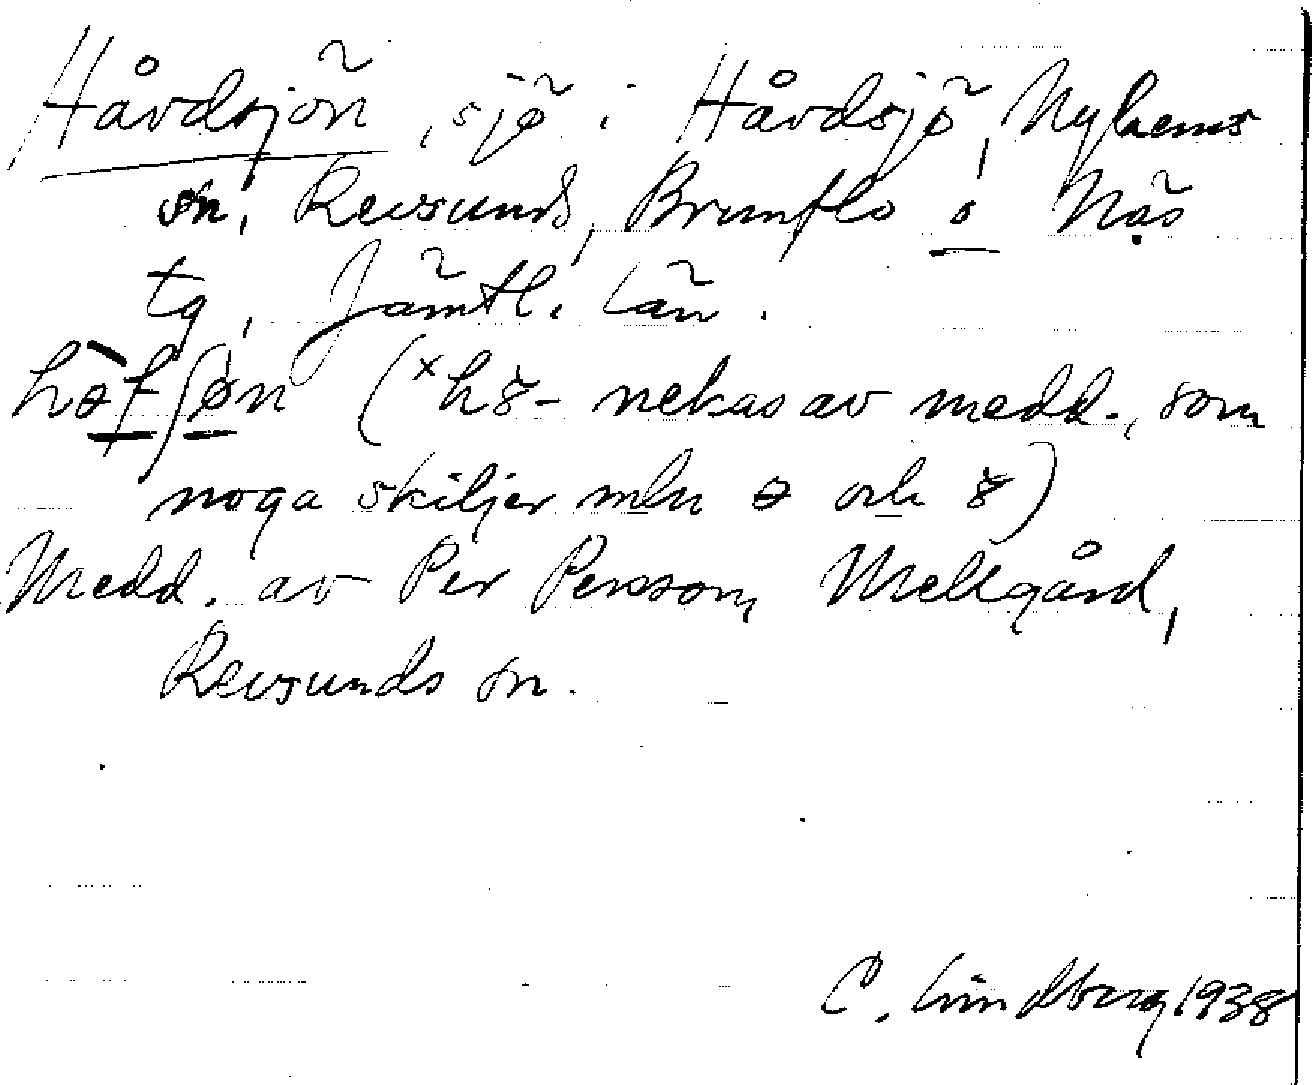 Håvdsjön, sjö i Håvdsjö, Nyhems
sn, Revsunds, Brunflo o Näs
tg, Jämtl. län.
(ˣh8- nekas av medd., som
noga skiljer mln ɵ och 8)
Medd. av Per Persson, Mellgård,
Revsunds sn.
C. Lindberg 1938